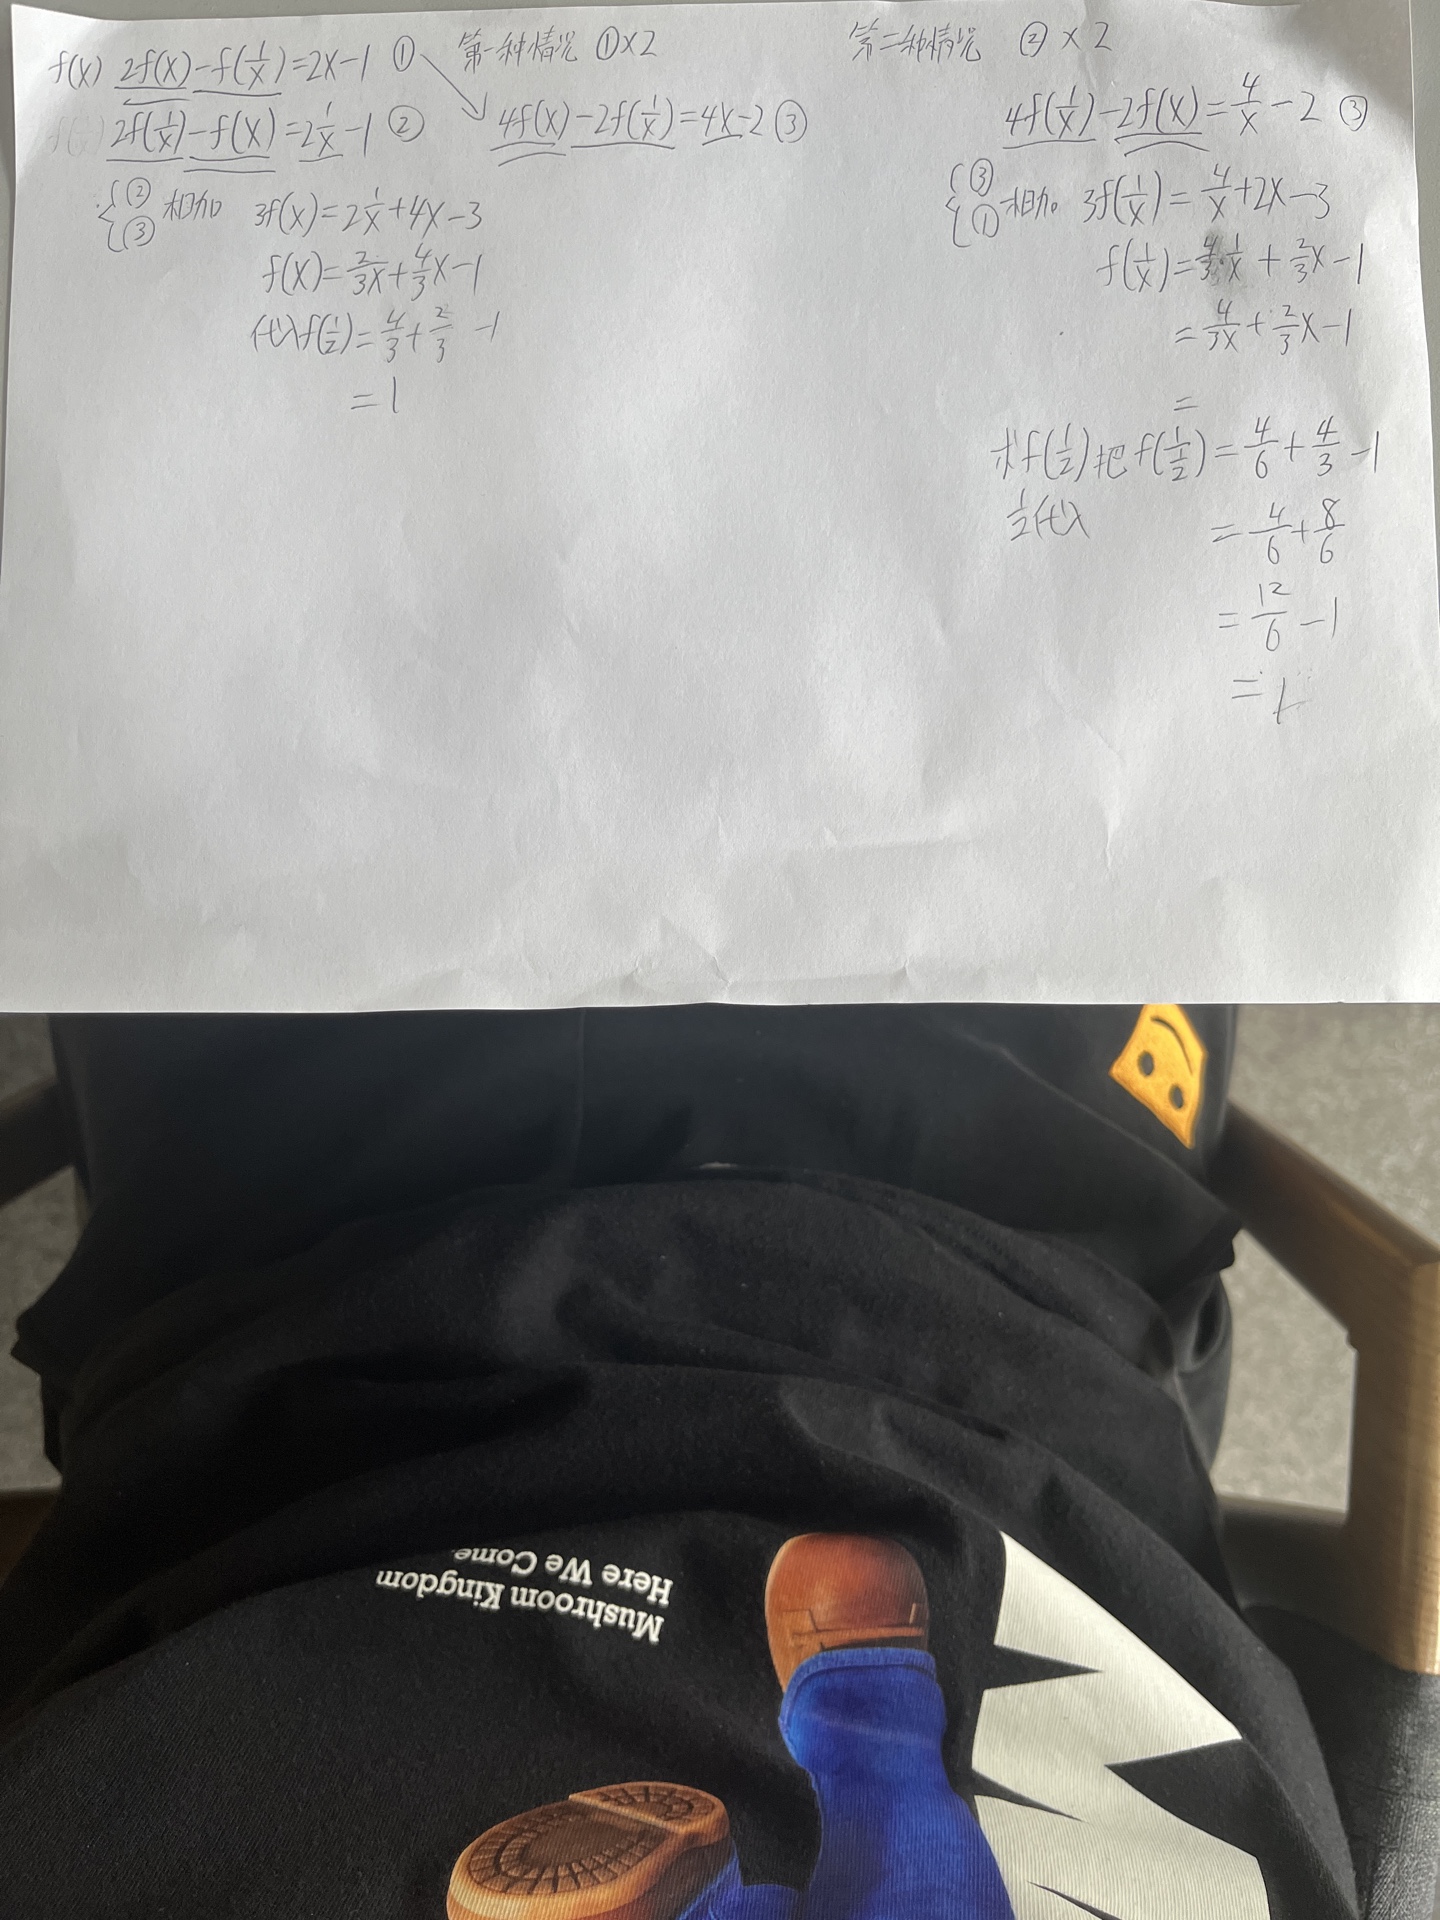 f(x) 2f(x)-f(1/x)=2x-1 ①
2f(1/x)-f(x)=2 1/x-1 ②
第一种情况 ①×2
4f(x)-2f(1/x)=4x-2 ③
{②③ 相加 3f(x)=2 1/x+4x-3
f(x)=2/3x+4/3x-1
代入f(1/2)=4/3+2/3 -1
=1
第二种情况 ②×2
4f(1/x)-2f(x)=4/x-2 ③
{③① 相加 3f(1/x)=4/x+2x-3
f(1/x)=4/3·1/x+2/3x-1
=4/3x+2/3x-1
=
求f(1/2)把 f(1/(1/2))=4/6+4/3-1
1/2代入
=4/6+8/6
=12/6-1
=1
Mushroom Kingdom
Here We Come